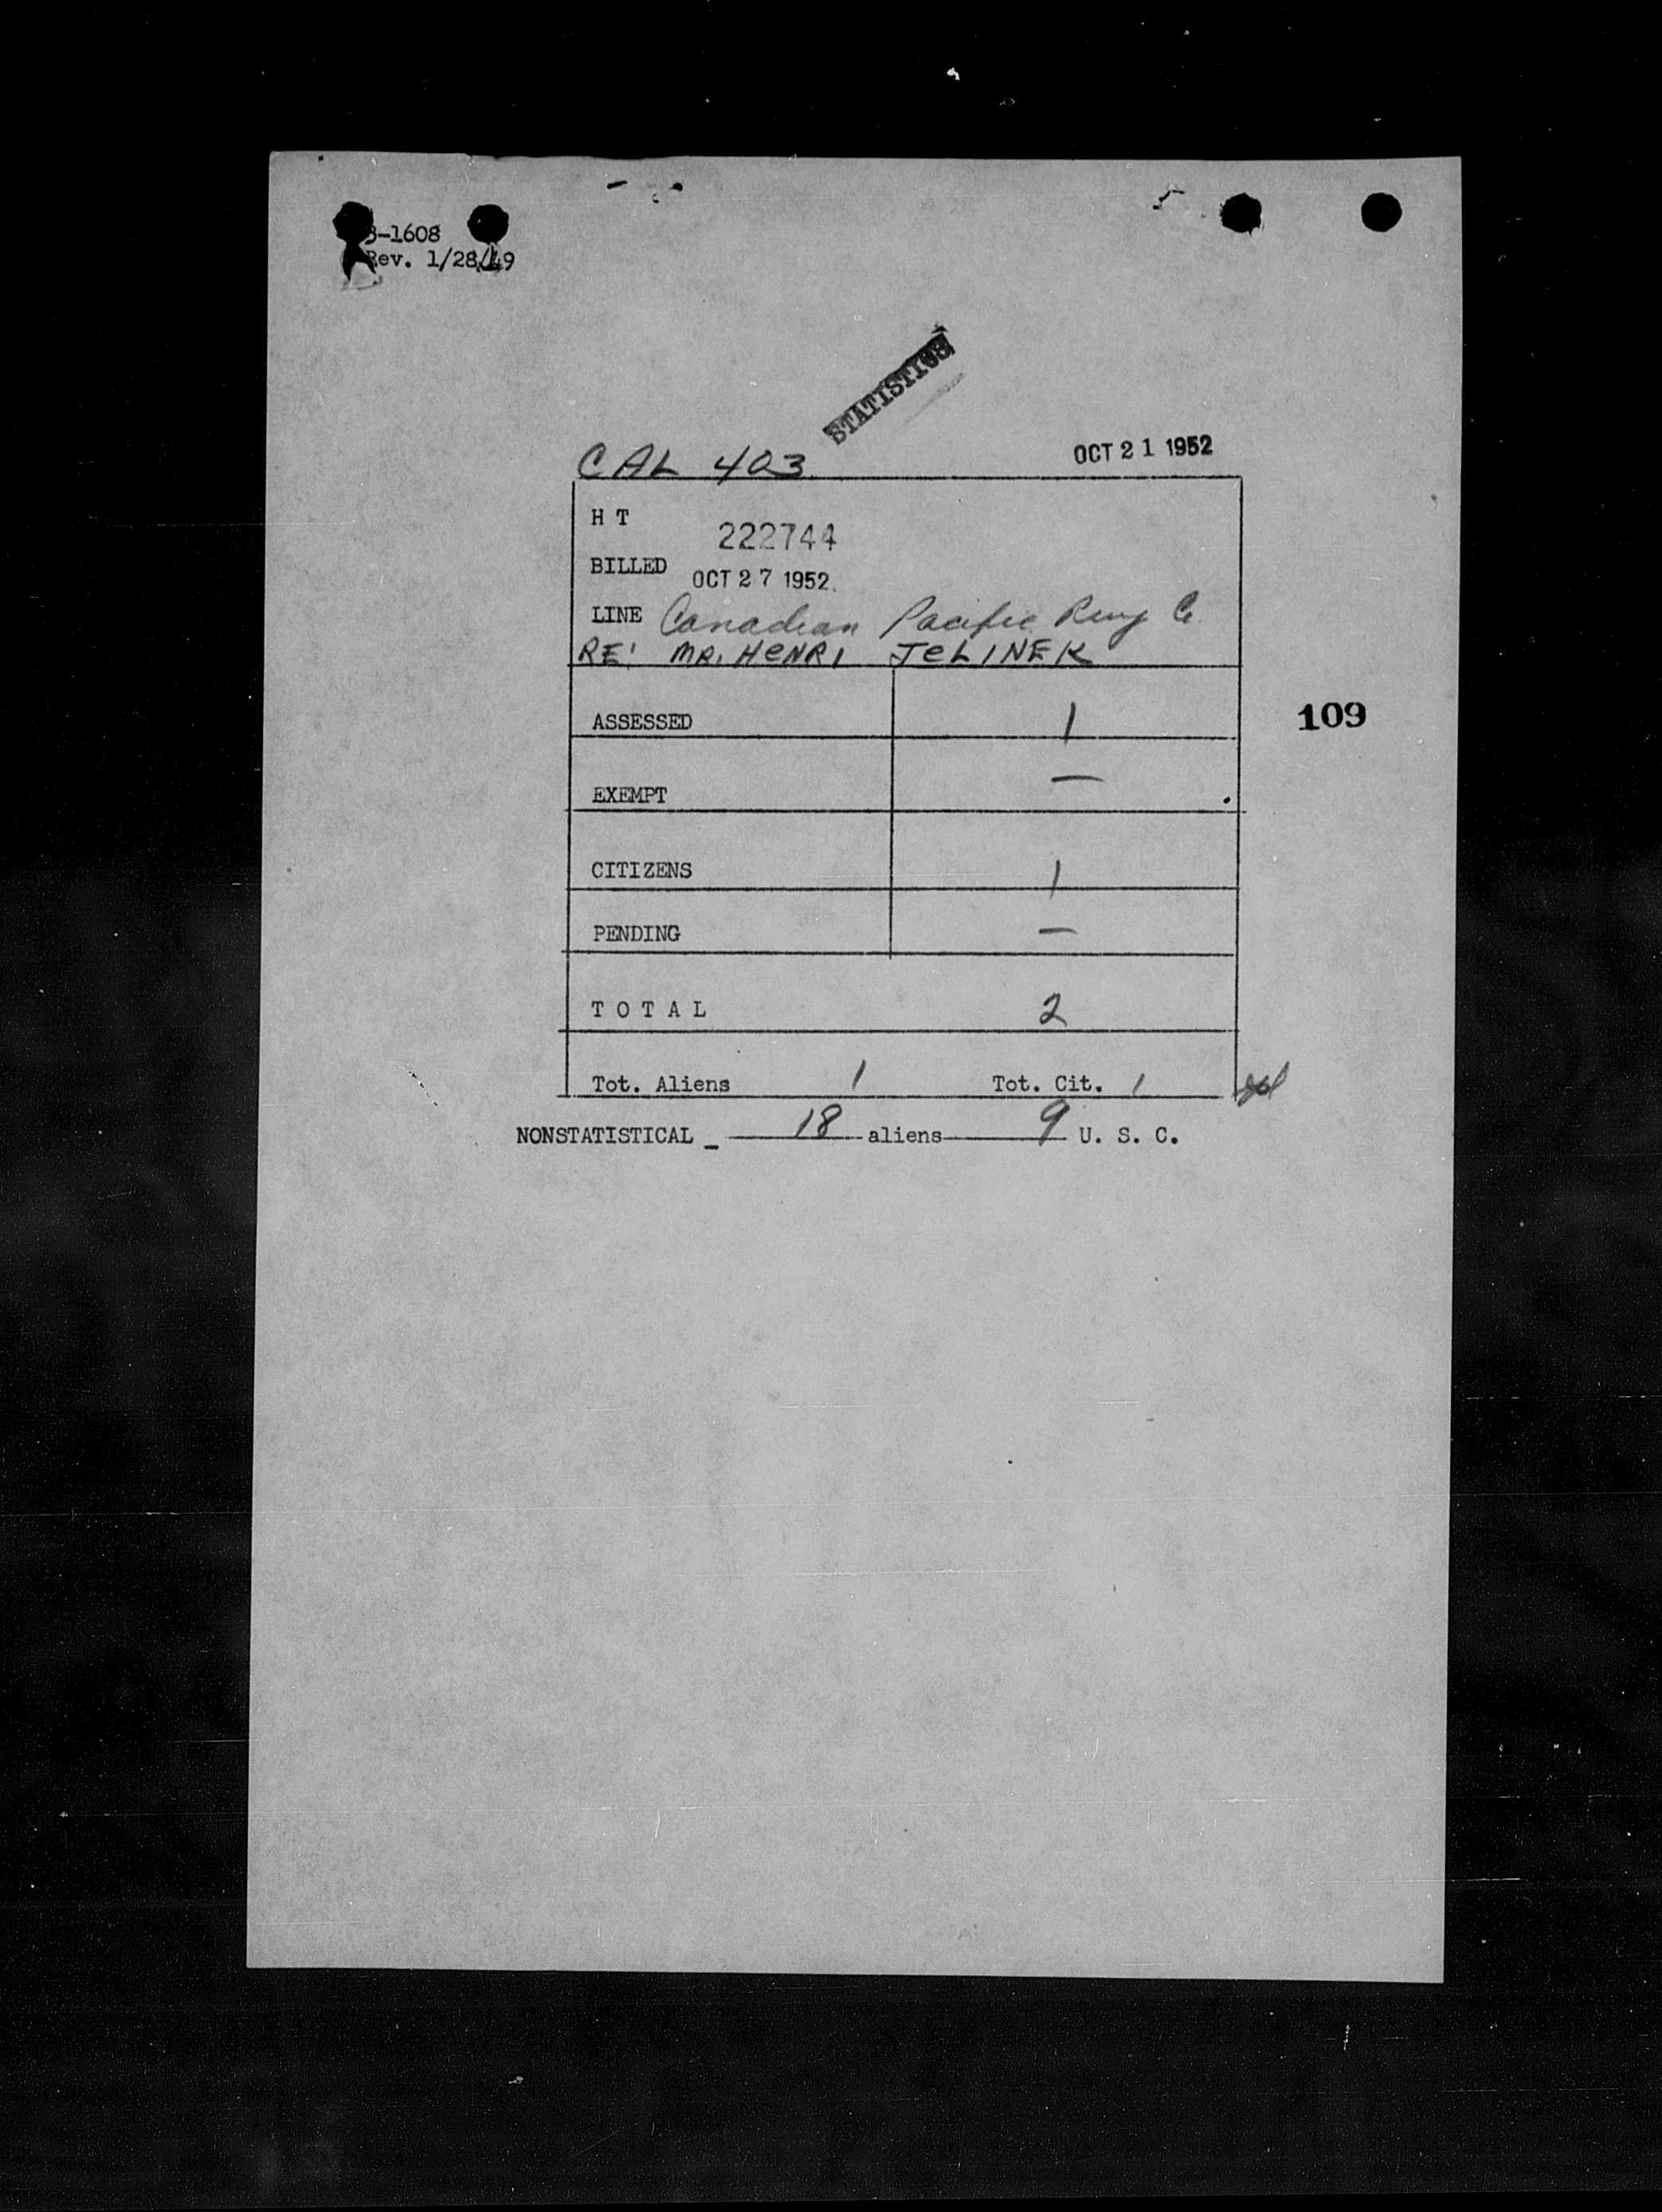 3-1608
Rev. 1/28/49
STATISTICS
CAL 403 OCT 21 1952
H T 222744
BILLED OCT 27 1952
LINE Canadian Pacific Rwy Co.
RE: MR. HENRI JELINEK
ASSESSED 1
109
EXEMPT —
CITIZENS 1
PENDING —
T O T A L 2
Tot. Aliens 1 Tot. Cit. 1
NONSTATISTICAL - 18 aliens 9 U. S. C.